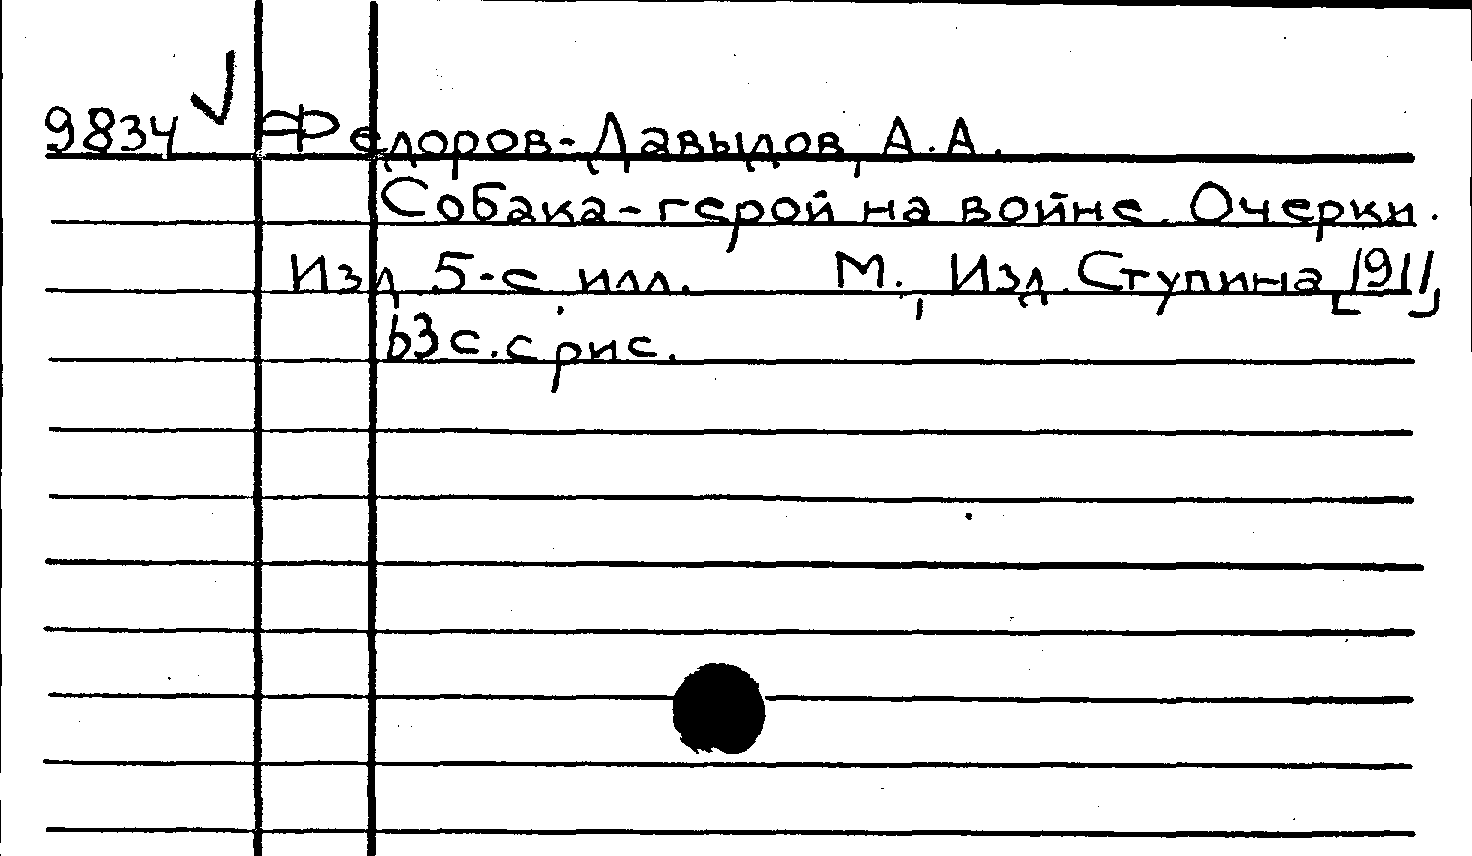 9834 √ Федоров-Давыдов, А.А.
Собака-герой на войне. Очерки.
Изд 5-е, илл. М., Изд. Ступина [1911]
63 с. с рис.